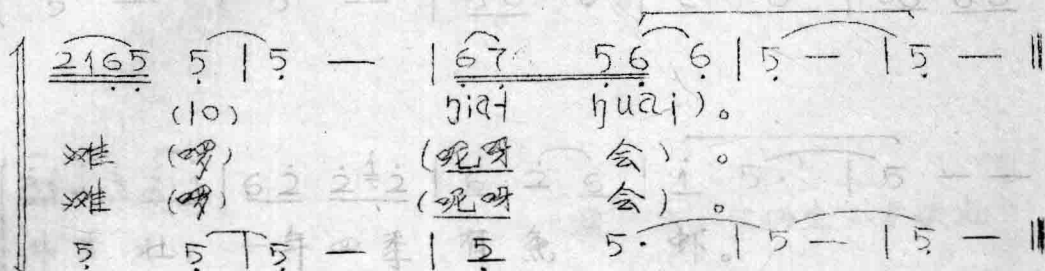 2165 5 | 5 — | 67 56 6 | 5 — | 5 — ‖
(lo) ŋiaɨ ŋuai)。
难 (啰) (呢呀 会)。
难 (啰) (呢呀 会)。
5 5 | 5 — | 5 5· | 5 — | 5 — ‖